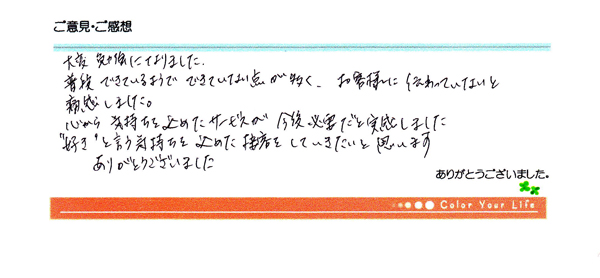 ご意見・ご感想
大変勉強になりました。
普段できているようでできていない点が多く、お客様に伝わっていないと
痛感しました。
心から気持ちを込めたサービスが今後必要だと実感しました
"好き"と言う気持ちを込めた接客をしていきたいと思います
ありがとうございました
ありがとうございました。
Color Your Life